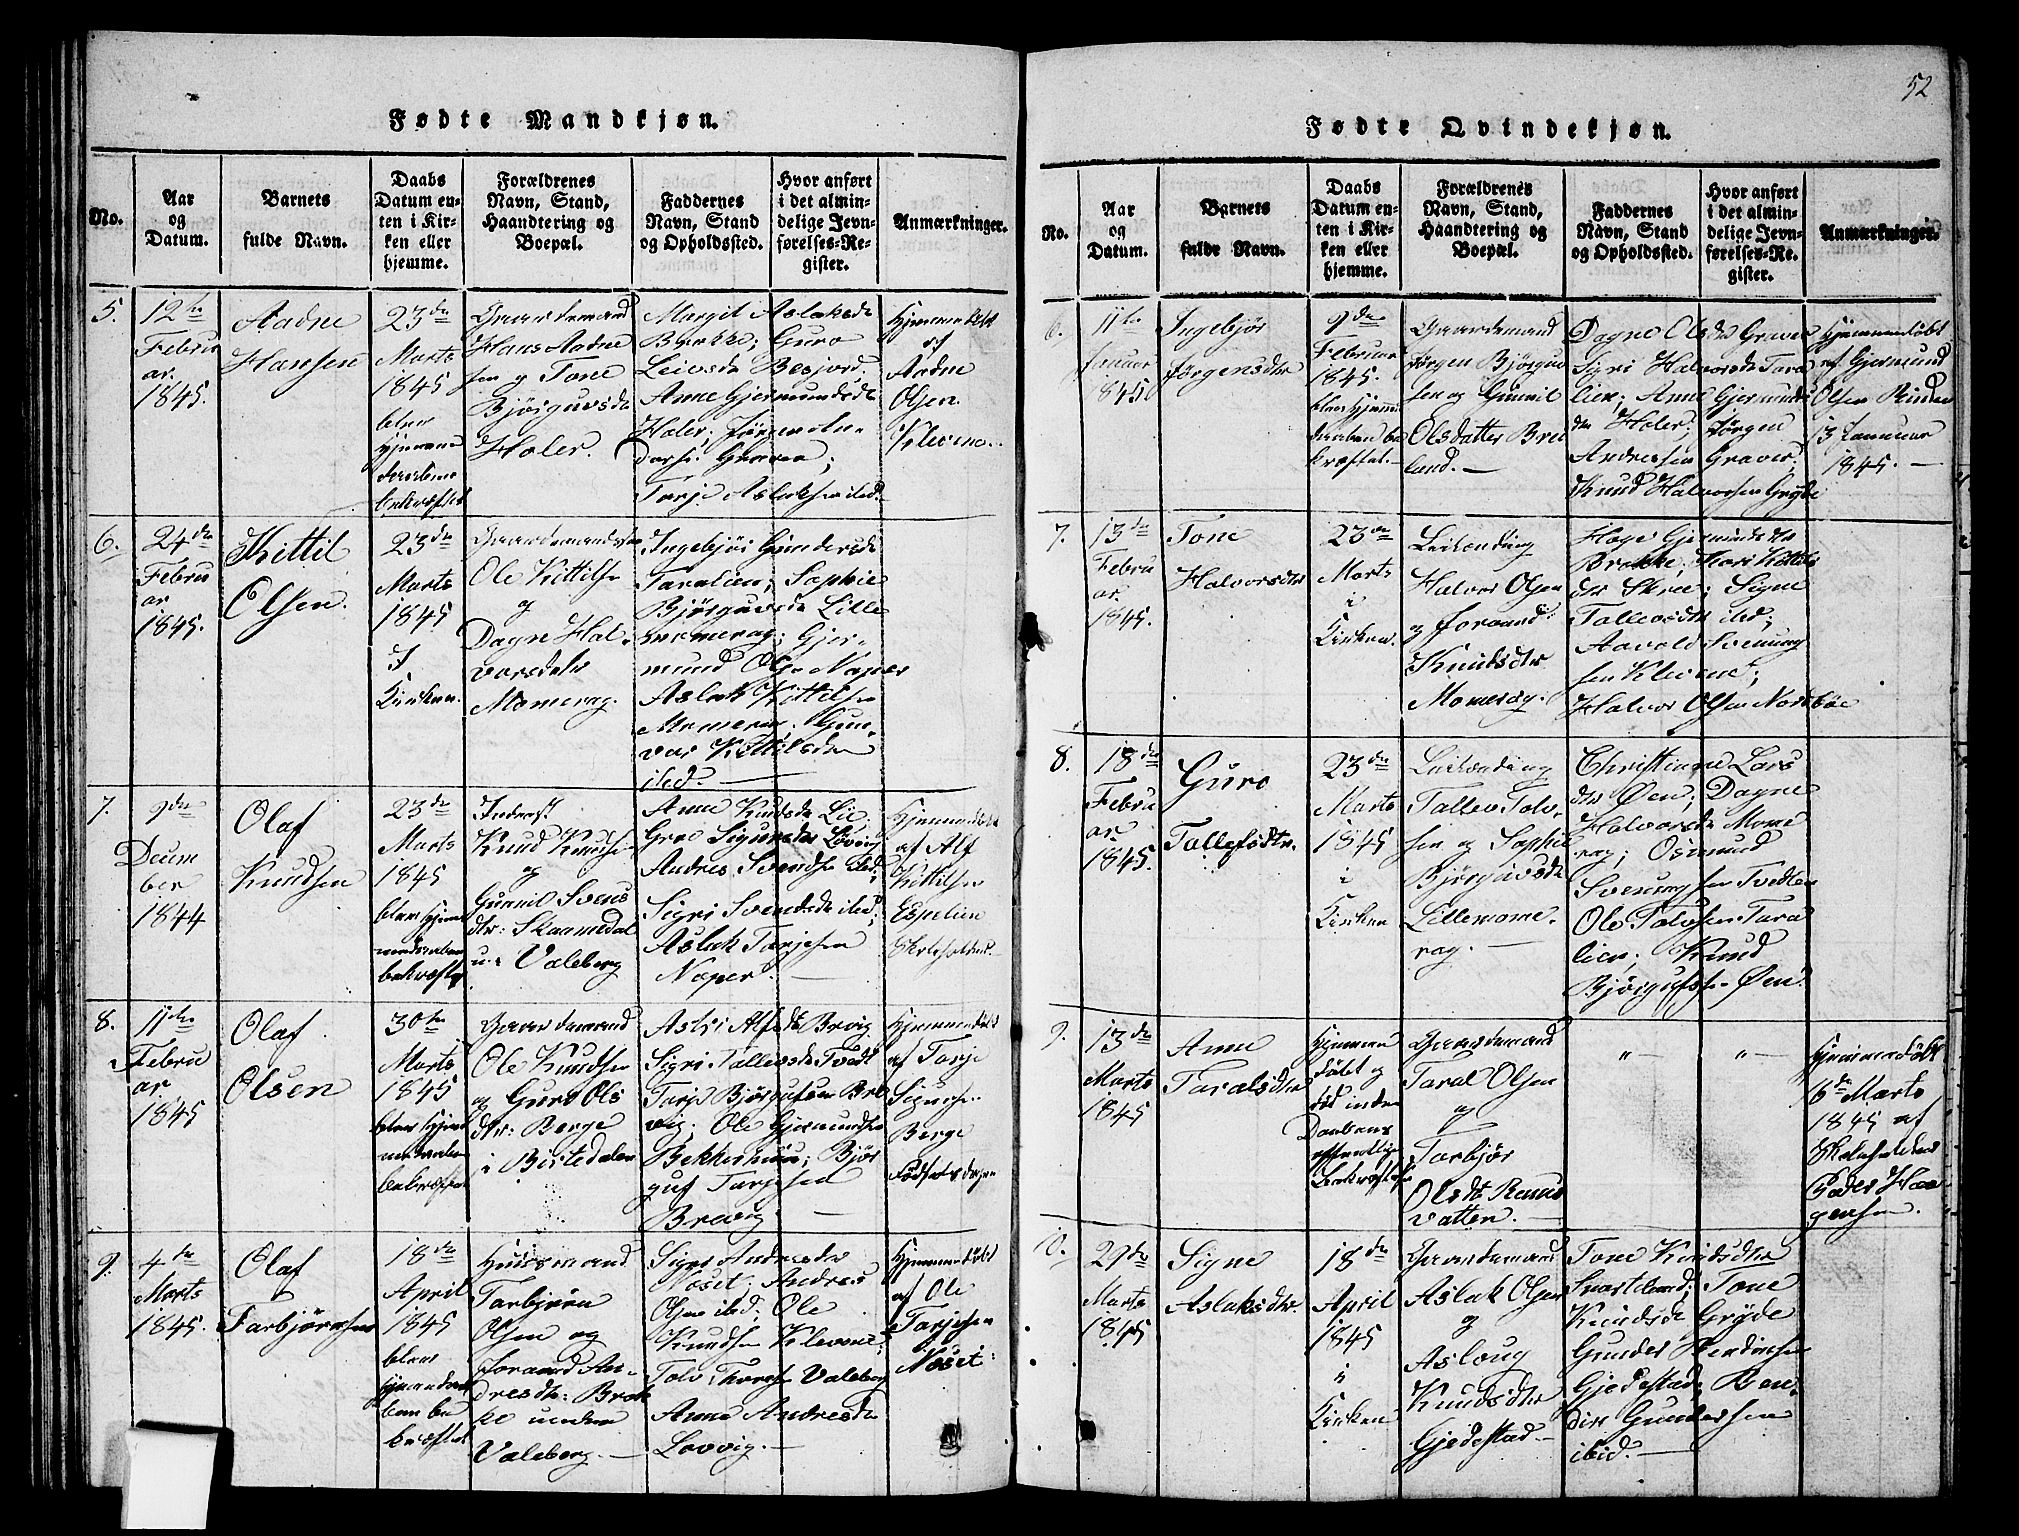 Fødte Mandkjøn.
No.
Aar
og
Datum.
Barnets
fulde Navn.
Daabs
Datum en-
ten i Kir-
ken eller
hjemme.
Forældrenes
Navn, Stand,
Haandtering og
Boepæl.
Faddernes
Navn, Stand
og Opholdssted.
Hvor anført
i det almin-
delige Jevn-
førelses-Re-
gister.
Anmærkninger.
5.
12te
Febru
ar.
1845.
Aadne
Hansen
23de
Marts
1845
blev
hjemme
daaben
bekræftet
Gaardemand
Hans Aadne
sen og Tone
Bjørguvsdr
Holer.
Margit Aslaksdr
Brække; Guro
Leivsdr Besjord.
Anne Gjermundsdr
Holer; Jørgen An-
ders: Graver;
Tarje Aslaksen ibd.
Hjemmedøbt
af
Aadne
Olsen
Klevene.
6.
24de
Febru
ar
1845.
Kittil
Olsen.
23de
Marts
1845
I
Kirken.
Gaardemand
Ole Kittilsen
og
Dagne Hal-
vorsdatr
Momerag.
Ingebjør Gundersdr
Taralien; Sophie
Bjørguvsdr Lille
momerag; Gjer-
mund Olsen Naper
Aslak Kittilsen
Momerag; Gun-
vor Kittilsdr
ibd.
7.
9de
Decem
ber
1844
Olaf
Knudsen
23de
Marts
1845
blev hjem
medaaben
bekræftet
Inderst
Knud Knudsen
og
Gunnil Svens
dtr: Skaamedal
u: Valeberg
Anne Knudsdr Lie
Gro Sigursdr Løvvig
Andres Svendsen ibd;
Sigri Svensdr ibd;
Aslak Tarjesen
Naper.
Hjemmedøbt
af Alf
Kittilsen
Espelien
Skoleholder.
8.
11te
Febru
ar
1845
Olaf
Olsen
30te
Marts
1845
blev hjem
medaaben
bekræftet
Gaardemand
Ole Knudsen
og Guro Ols
dtr: Berge
i Bestedalen
Aslri Alfsdr Brevig
Sigri Tallevsdr Tvedt
Tarje Bjørgufsen Bre
vig; Ole Gjermundsen
Bekkerhuus; Bjør
guf Tarjesen
Brevig
Hjemmedøbt
af Tarje
Sigursen
Berge
Fødselsdagen
9.
4de
Marts
1845.
Olaf
Tarbjørnsen
18de
April
1845
blev
hjemmedaa
ben be
kræftet
Huusmand
Tarbjørn
Olsen og
Joraand An-
dresdtr: Bræk
ke under
Valeberg.
Signe Andresdr
Noset; Andres
Olsen ibd; Ole
Knudsen Klevene;
Tolv Thorsen Valeberg
Anne Andresdr
Lovvig.
Hjemmedøbt
af Ole
Tarjesen
Noset.
52
Fødte Qvindekjøn.
No.
Aar
og
Datum.
Barnets
fulde Navn.
Daabs
Datum en-
ten i Kir-
ken eller
hjemme.
Forældrenes
Navn, Stand,
Haandtering og
Boepæl.
Faddernes
Navn, Stand
og Opholdssted.
Hvor anført
i det almin-
delige Jevn-
førelses-Re-
gister.
Anmærkninger.
6.
11te
Januar
1845
Ingebjør
Jørgensdtr
9de
Februar
1845.
blev hjemme
daaben be
kræftet.
Gaardemand
Jørgen Bjørguv
sen og Gunnil
Olsdatter Brei
land.
Dagne Olsdr Graver
Sigri Halvorsdr Tara
lien; Anne Gjermunds
dr Holer; Jørgen
Andersen Graver;
Knud Halvorsen Gryde
Hjemmedøbt
af Gjermund
Olsen Rinden
13 Januar
1845.
7.
13de
Febru
ar
1845.
Tone
Halvorsdtr
23de
Marts
i
Kirken.
Leilænding
Halvor Olsen
og Joraand
Knudsdtr
Momerag.
Hæge Gjermundsdtr
Brække; Kari Kittils
dtr Skree; Signe
Tallevsdtr ibd;
Aavold Svenung
sen Klevene;
Halvor Olsen Nordbøe
8.
18de
Febru
ar
1845.
Guro
Tallefsdtr.
23de
Marts
1845
i
Kirken
Leilænding
Tallev Tolv-
sen og Sophie
Bjørguvsdr
Lillemome-
rag.
Christiane Lars
dtr Øen; Dagne
Halvorsdr Mome
rag; Osmund
Svenungsen Tvedten
Ole Tolvsen Tara
lien; Knud
Bjørgufsen Øen.
9.
13de
Marts
1845
Anne
Taralsdtr
Hjemme
døbt og
død inden
Daabens
offentlige
Bekræftelse
Gaardemand
Taral Olsen
og
Tarbjør
Olsdtr Raus
vatten.
"—
"—
Hjemmedøbt
6de Marts
1845 af
Skoleholder
Peder Haa-
gensen.
10.
29de
Marts
1845
Signe
Aslaksdtr.
18de
April
1845
i
Kirken
Gaardemand
Aslak Olsen
og
Aslaug
Knudsdtr
Gjedestad
Tone Knudsdtr
Svartland; Tone
Knudsdr Gryde
Gunder Hendriksen
Gjedestad; Ben-
dix Gundersen
ibid.